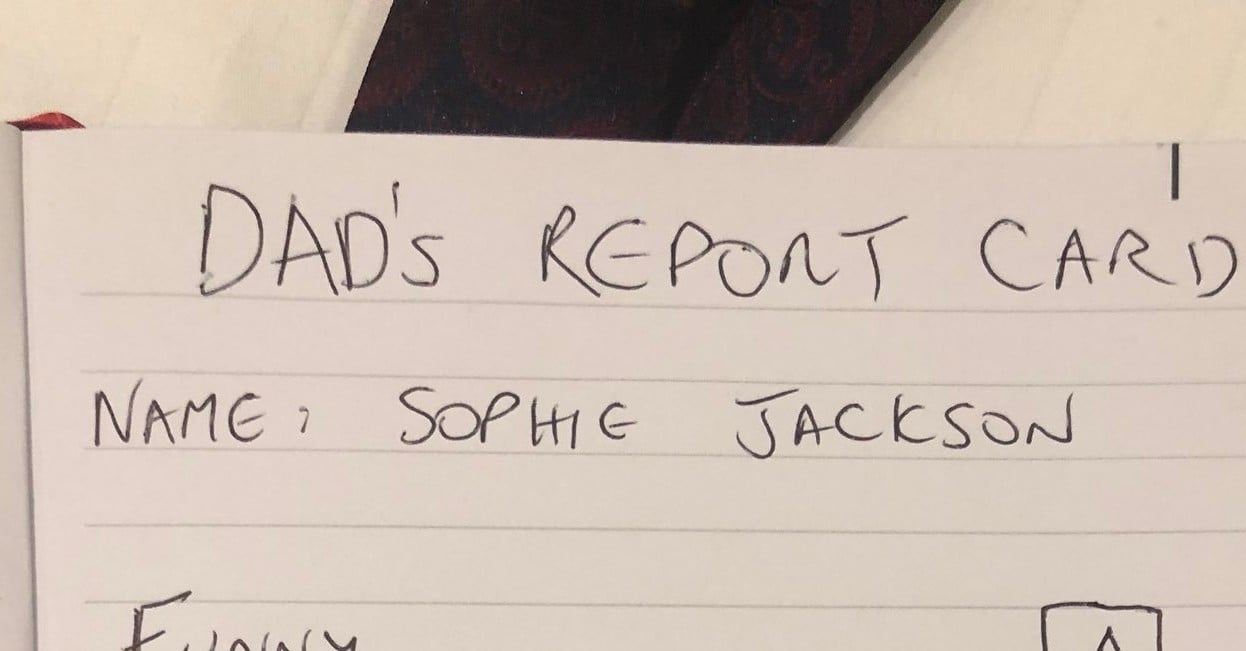 DAD's REPORT CARD
NAME: SOPHIE JACKSON
FUNNY